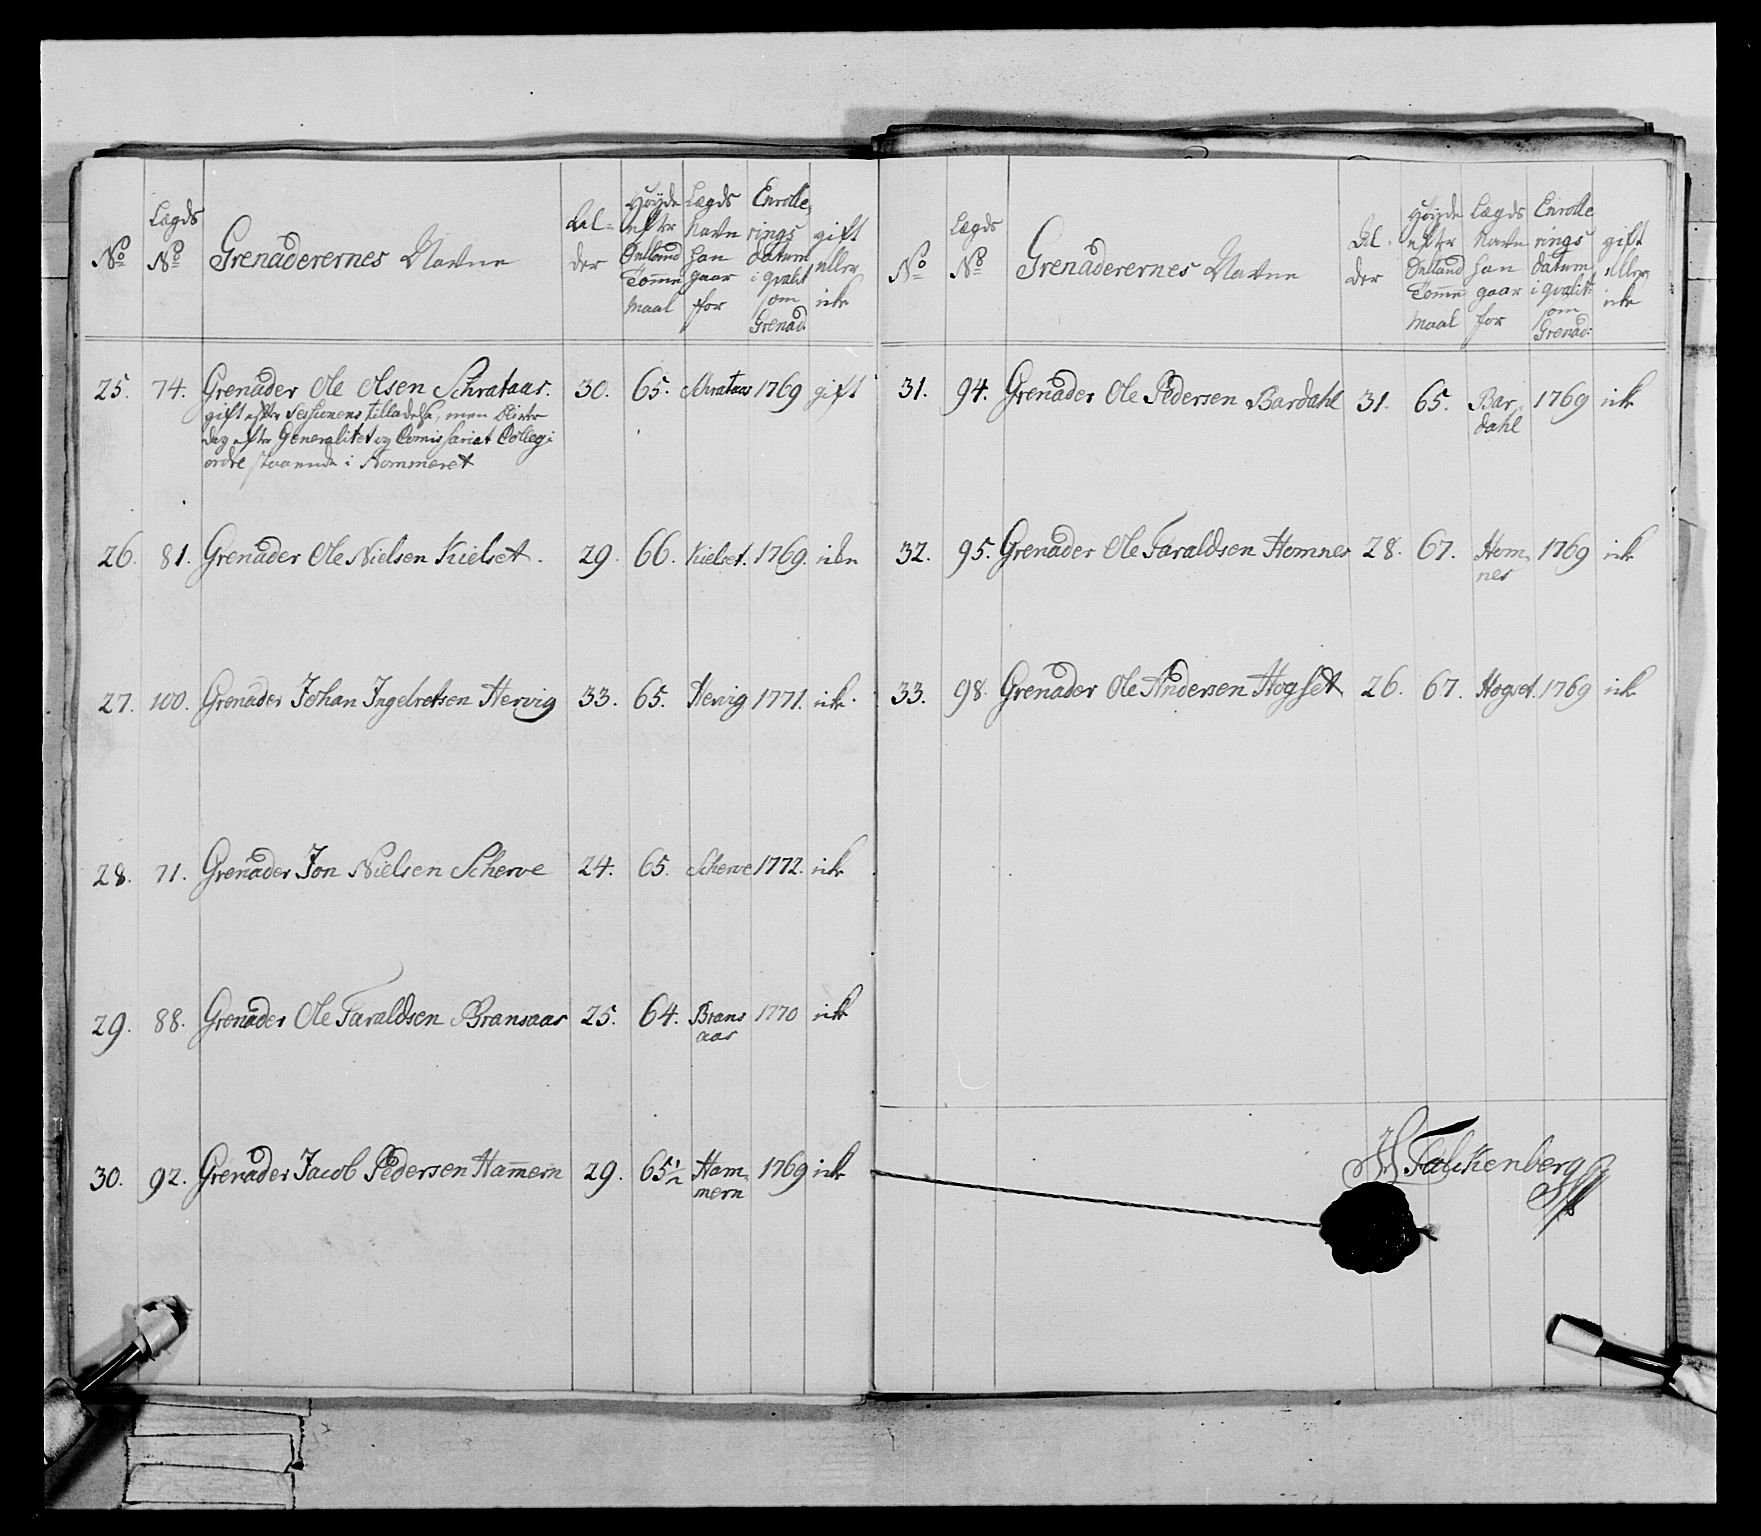 No
Lægds No
Grenaderernes Navne
Al-der
Høyde efter Siælland Tomme Maal
Lægds Navn han gaar for
Enrolle rings datum i qvalit om Grenad:
gift eller ick
25. 74. Grenader Ole Olsen Schrataas. 30. 65. Schrataas 1769 gift
gift efter Sessionens tilladelse, men bliver
dog efter Generalitet og Comissariat Collegi
ordre staaende i Nommeret
26. 81. Grenader Ole Nielsen Kielset. 29. 66. Kielset. 1769. icke
27. 100. Grenader Johan Ingelretsen Hervig 33. 65. Hervig 1771. ick.
28. 71. Grenader Jon Nielsen Scherve 24. 65. Scherve 1772. ick
29. 88. Grenader Ole Taraldsen Bransaas 25. 64. Brans
aas 1770 ick
30. 92. Grenader Jacob Pedersen Ham̅ern 29. 65 1/2 Ham-
mern 1769 ick
No
Lægds No
Grenaderernes Navne
Al-der
Høyde efter Siælland Tomme Maal
Lægds Navn han gaar for
Enrolle rings datum i qvalit: om Grenad:
gift eller ick
31. 94. Grenader Ole Pedersen Bardahl 31. 65. Bar-
dahl 1769 ick
32. 95. Grenader Ole Taraldsen Homnes 28. 67. Hom-
nes 1769 ick
33. 98. Grenader Ole Andersen Hogset 26. 67. Hogset. 1769 ick
Falckenberg